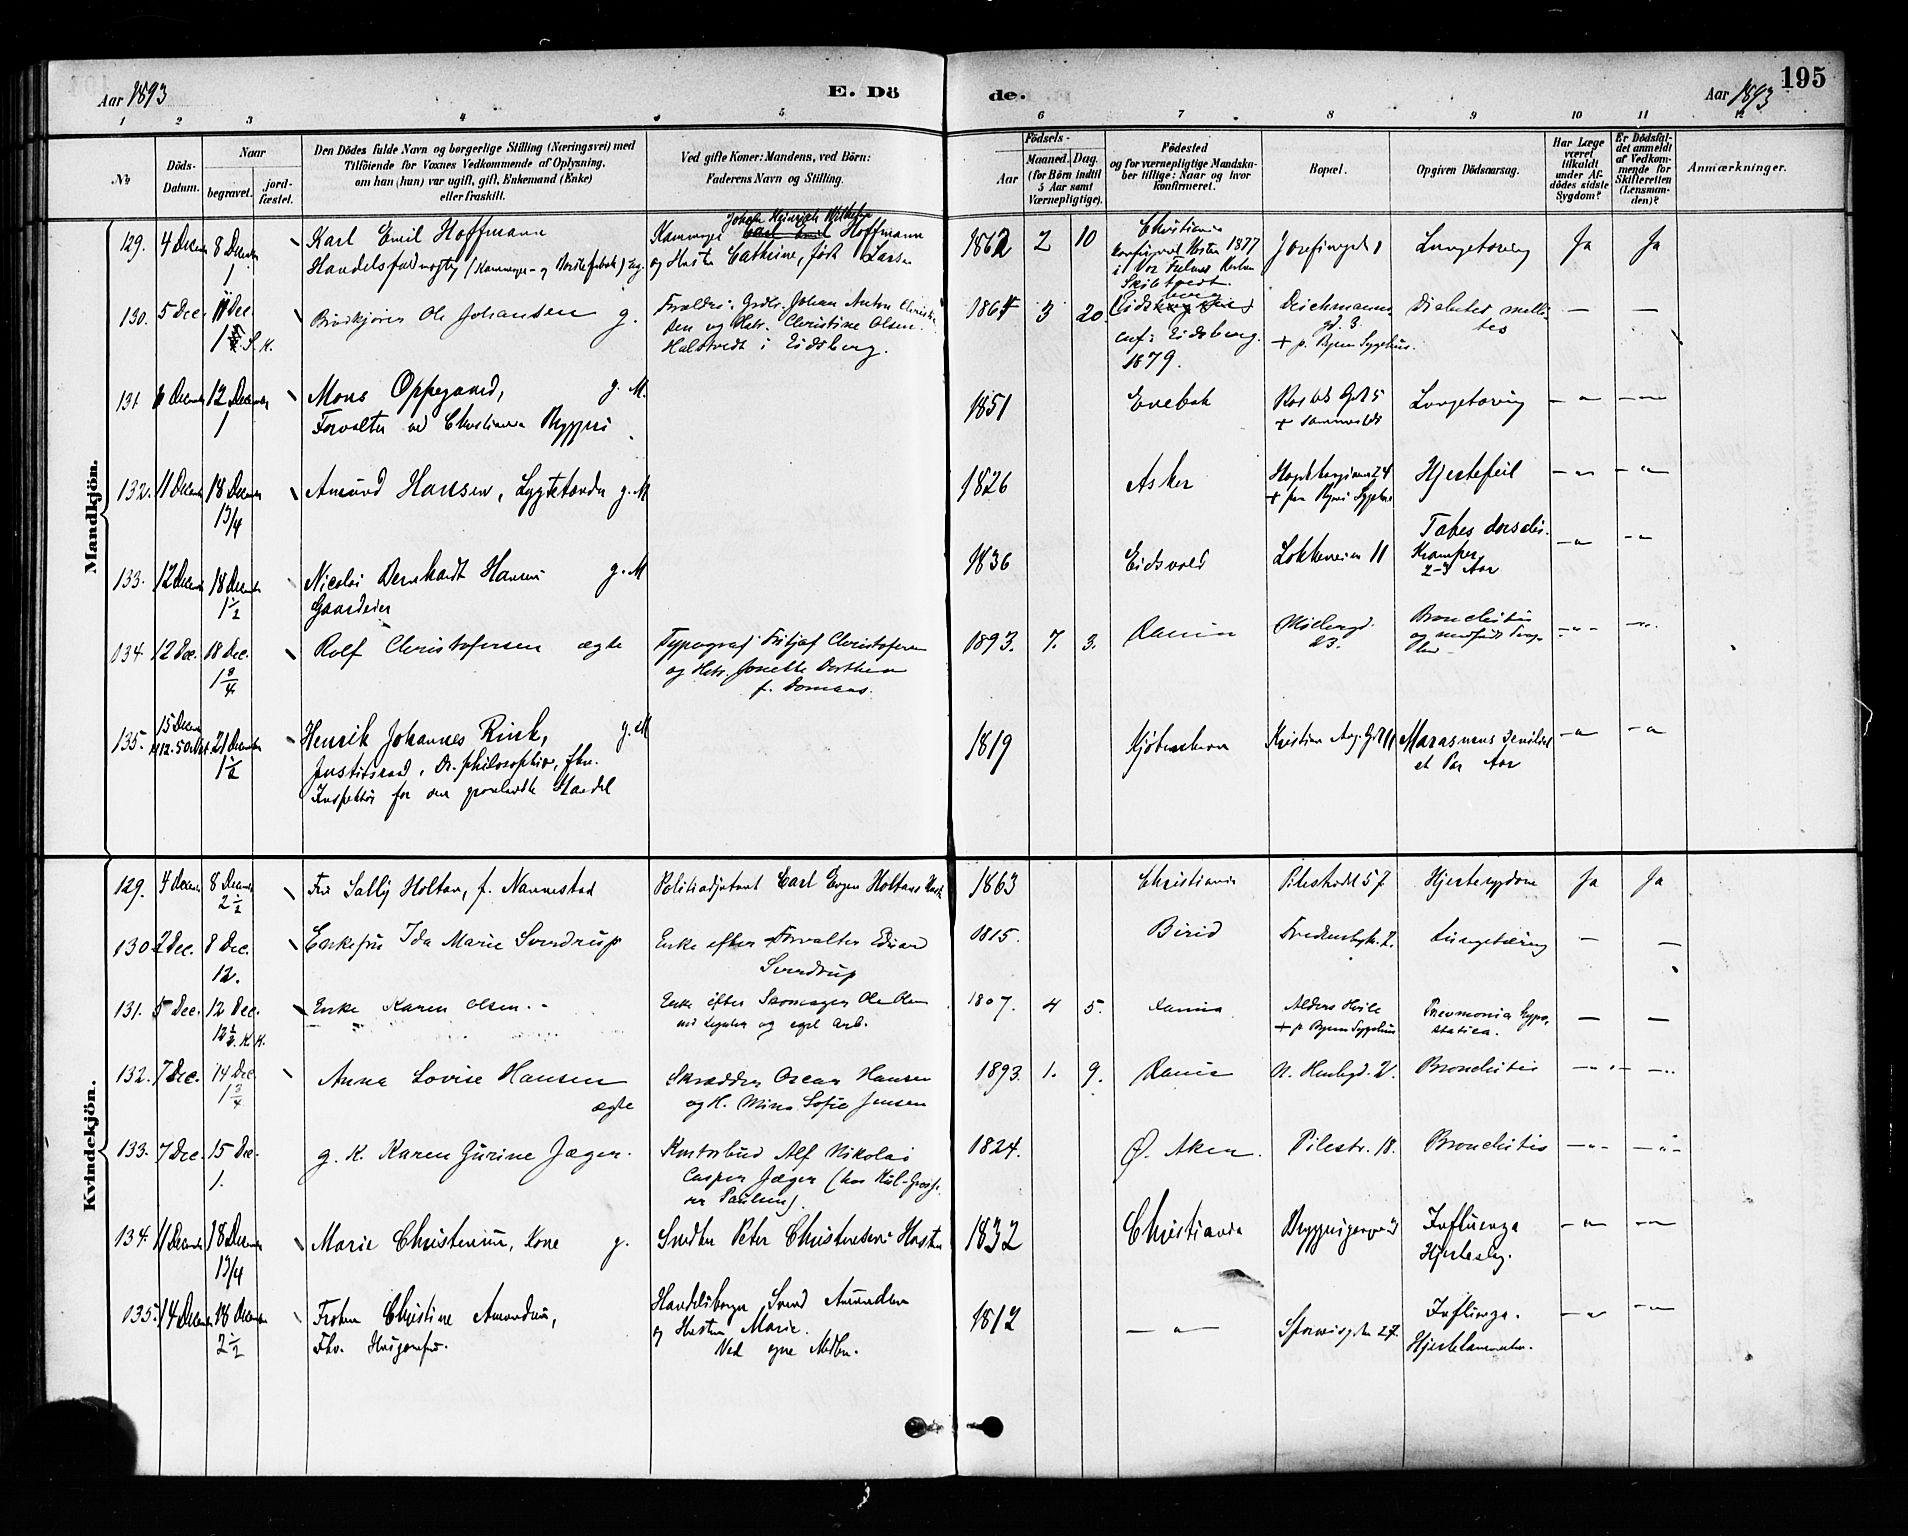 Aar 1893
E. Dö
de.
Aar 1893
195
1 2 3 4 5 6 7 8 9 10 11 12
No
Döds-Datum.
Naar
begravet.
jord-fæstet.
Den Dödes fulde Navn og borgerlige Stilling (Næringsvei) med
Tilföiende for Voxnes Vedkommende af Oplysning,
om han (hun) var ugift, gift, Enkemand (Enke)
eller fraskilt.
Ved gifte Koner: Mandens, ved Börn:
Faderens Navn og Stilling.
Födsels-
Aar
Maaned. Dag.
(for Börn indtil
5 Aar samt
Værnepligtige).
Födested
og for værnepligtige Mandska-
ber tillige: Naar og hvor
konfirmeret.
Bopæl.
Opgiven Dödsaarsag.
Har Læge
været
tilkaldt
under Af-
dödes sidste
Sygdom?
Er Dödsfal-
det anmeldt
af Vedkom-
mende for
Skifteretten
(Lensman-
den)?
Anmærkninger.
Mandkjön.
129. 4 Decem 8 Decem 1 Karl Emil Hoffmann
Johan Heinrich Wilhelm
Hoffmann
og Hustru Cathrine, født Larsen
1862 2 10 Christiania
Høsten 1877
i Vor Frelsers Kirke
Josefinegd 1 Lungetæring Ja Ja
130. 5 Dec. 11 Dec. 1 S. K. Ole Johansen g.
Forældre: Johan Anton
og Hstr. Christine Olsen
i Eidsberg.
1864 3 20
conf. i Eidsberg.
1879.
Deichmans gd. 3.
+ p. Byens Sygehus.
Diabetes melli-
tes — —
131. 6 Decem 12 Decem 1 Mons Oppegaard, g. M.
Forvalter ved Christiania Bryggeri
1851 Enebak + sammesteds Lungetæring — " — — " —
132. 11 Decem 18 Decem 13/4 Amund Hansen, Lygtetænder g. M
1826 Asker
+ paa Byens Sygehus
Hjertefeil — " — — " —
133. 12 Decem 18 Decem 1 1/2 Nicolai Bernhardt Hansen g. M
Gaardeier
1836 Eidsvold Løkkeveien 11 Tabes dorsalis.
Kramper
2-3 Aar — " — — " —
134. 12 Dec. 18 Dec. 1 3/4 Rolf Christofersen ægte
Typograf Fritjof Christofersen
og Hstr. Josette Dorthea
f. Domaas.
1893. 7. 3. Xania Møllergd. 23. Bronchitis
— " — — " —
135. 15 Decem 21 Decem 1 1/2 Henrik Johannes Rink, g. M
Justitsraad, Dr. philosophiæ, fhv.
Inspektør for den grønlandske Handel
1819 Kjøbenhavn Kristian Aug. Gd 11 Marasmus senilis
et Par Aar — " — — " —
Kvindekjön.
129. 4 Decem 8 Decem 2 1/2 Fru Sally Holtan, f. Nannestad
Politiadjutant Carl Holtans
1863 Christiania Pilestrædet 57 Hjertesygdom Ja Ja
130 2 Dec. 8 Dec. 12. Enkefru Ida Marie Sverdrup
Enke efter Forvalter
Sverdrup
1815. Birid Lungetæring — —
131. 5 Dec. 12 Dec. 12 1/2. K. K. Enke Karen Olsen.
Enke efter Skomager Ole Olsen
og eget arb.
1807. 4 5. Xania Alders Hvile
+ p. Byens Sygehus
Pneumonia hypo-
statica. — —
132. 7 Dec. 14 Dec. 1 3/4 Anna Lovise Hansen
ægte
Skrædder Oscar Hansen
og H. Mina Sofie Jensen
1893. 1. 9. Xania Bronchitis — " — — " —
133. 7 Dec. 15 Dec. 1. g. K. Karen Gurine Jæger.
Kontorbud Alf Nikolai
Casper Jæger
Paulsen).
1824. Ø. Aker. Pilestr. 18. Bronchitis — " — — " —
134. 11 Decem 18 Decem 13/4 Marie Christensen, Kone g.
Snedker Peter Christensens Hustru
1832 Christiania Influenza
— " — — " —
135. 14 Decem 18 Decem 2 1/2 Frøken Christine Amundsen,
Fhv.
Handelsborger Svend Amundsen
og Hustru Marie.
Ved egne Midler.
1812 — " — 27. Influenza.
— " — — " —